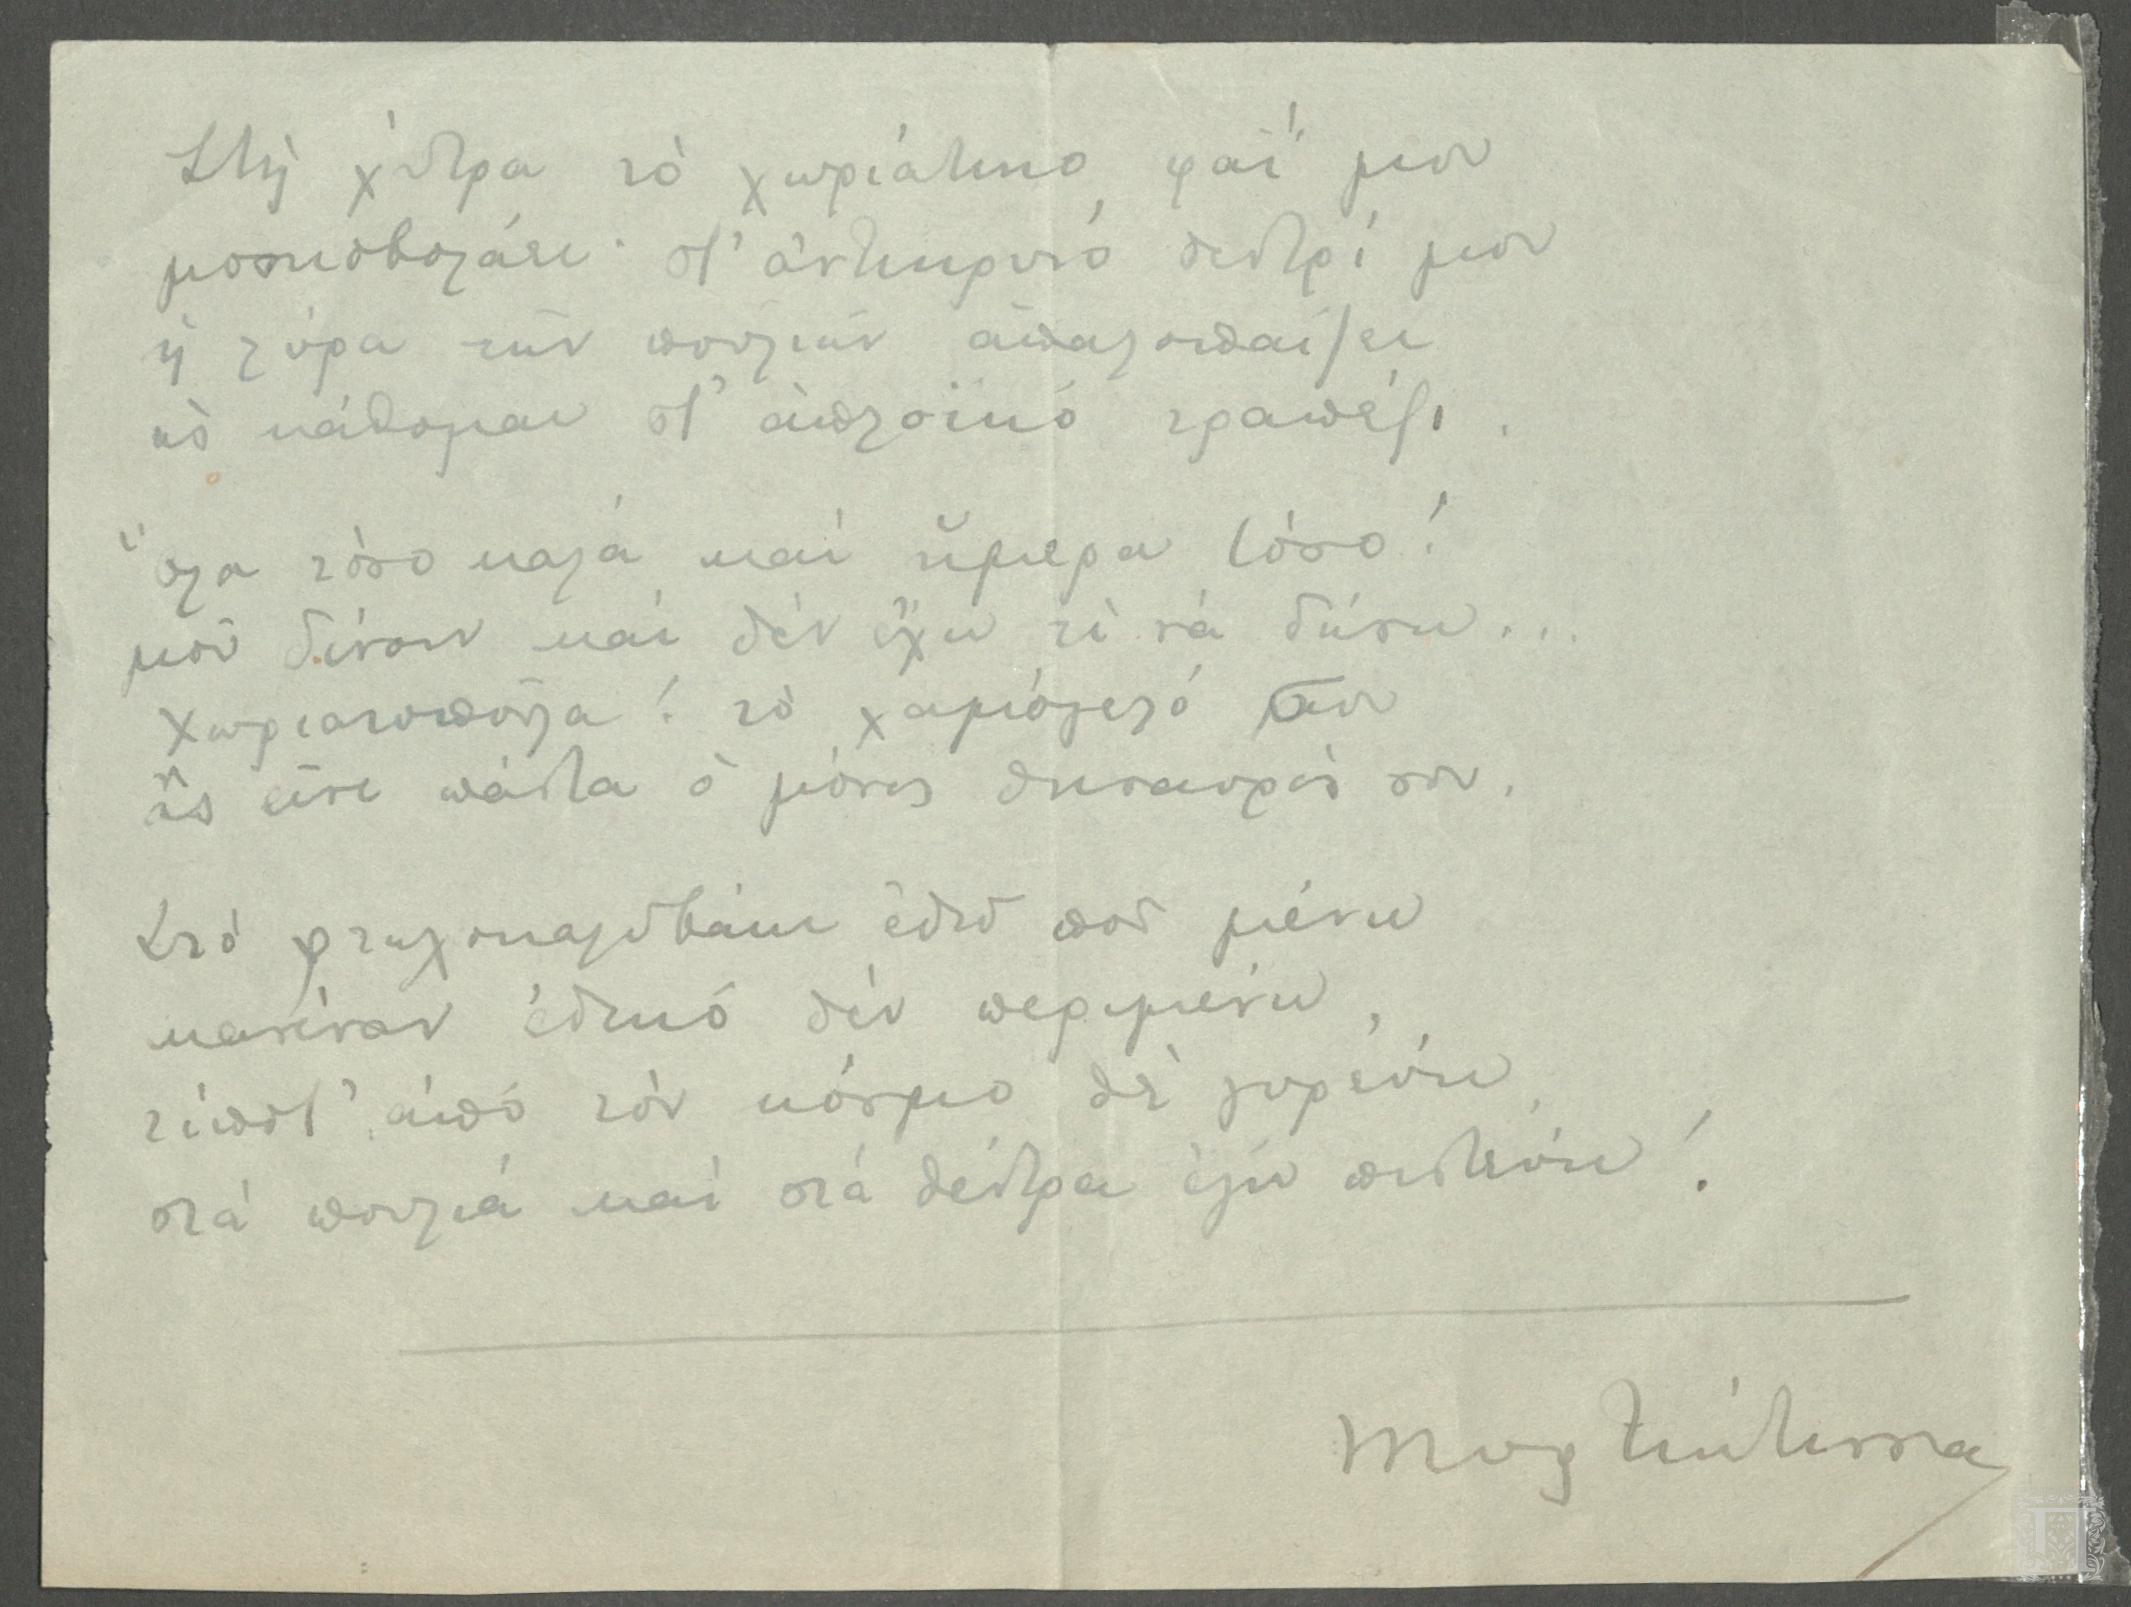 Στὴ χύτρα τὸ χωριάτικο φαΐ μου
μοσκοβολάει· στ' ἀντικρυνό δεντρί μου
ἡ λύρα τῶν πουλιῶν ἁπαλοπαίζει
κι κάθομαι στ' ἁπλοϊκό τραπέζι.
Ὅλα τόσο καλά καί ἥμερα τόσο!
μοῦ δίνουν καί δέν ἔχω τί νά δώσω...
Χωριατοπούλα! τὸ χαμόγελό σου
ἂς εἶνε πάντα ὁ μόνος θησαυρός σου.
Στό φτωχοκαλυβάκι ἐδῶ πού μένω
κανέναν ἐδικό δέν περιμένω,
τίποτ' ἀπό τόν κόσμο δέ γυρεύω,
στά πουλιά καί στά δέντρα ἐγώ πιστεύω!
Μυρτιώτισσα